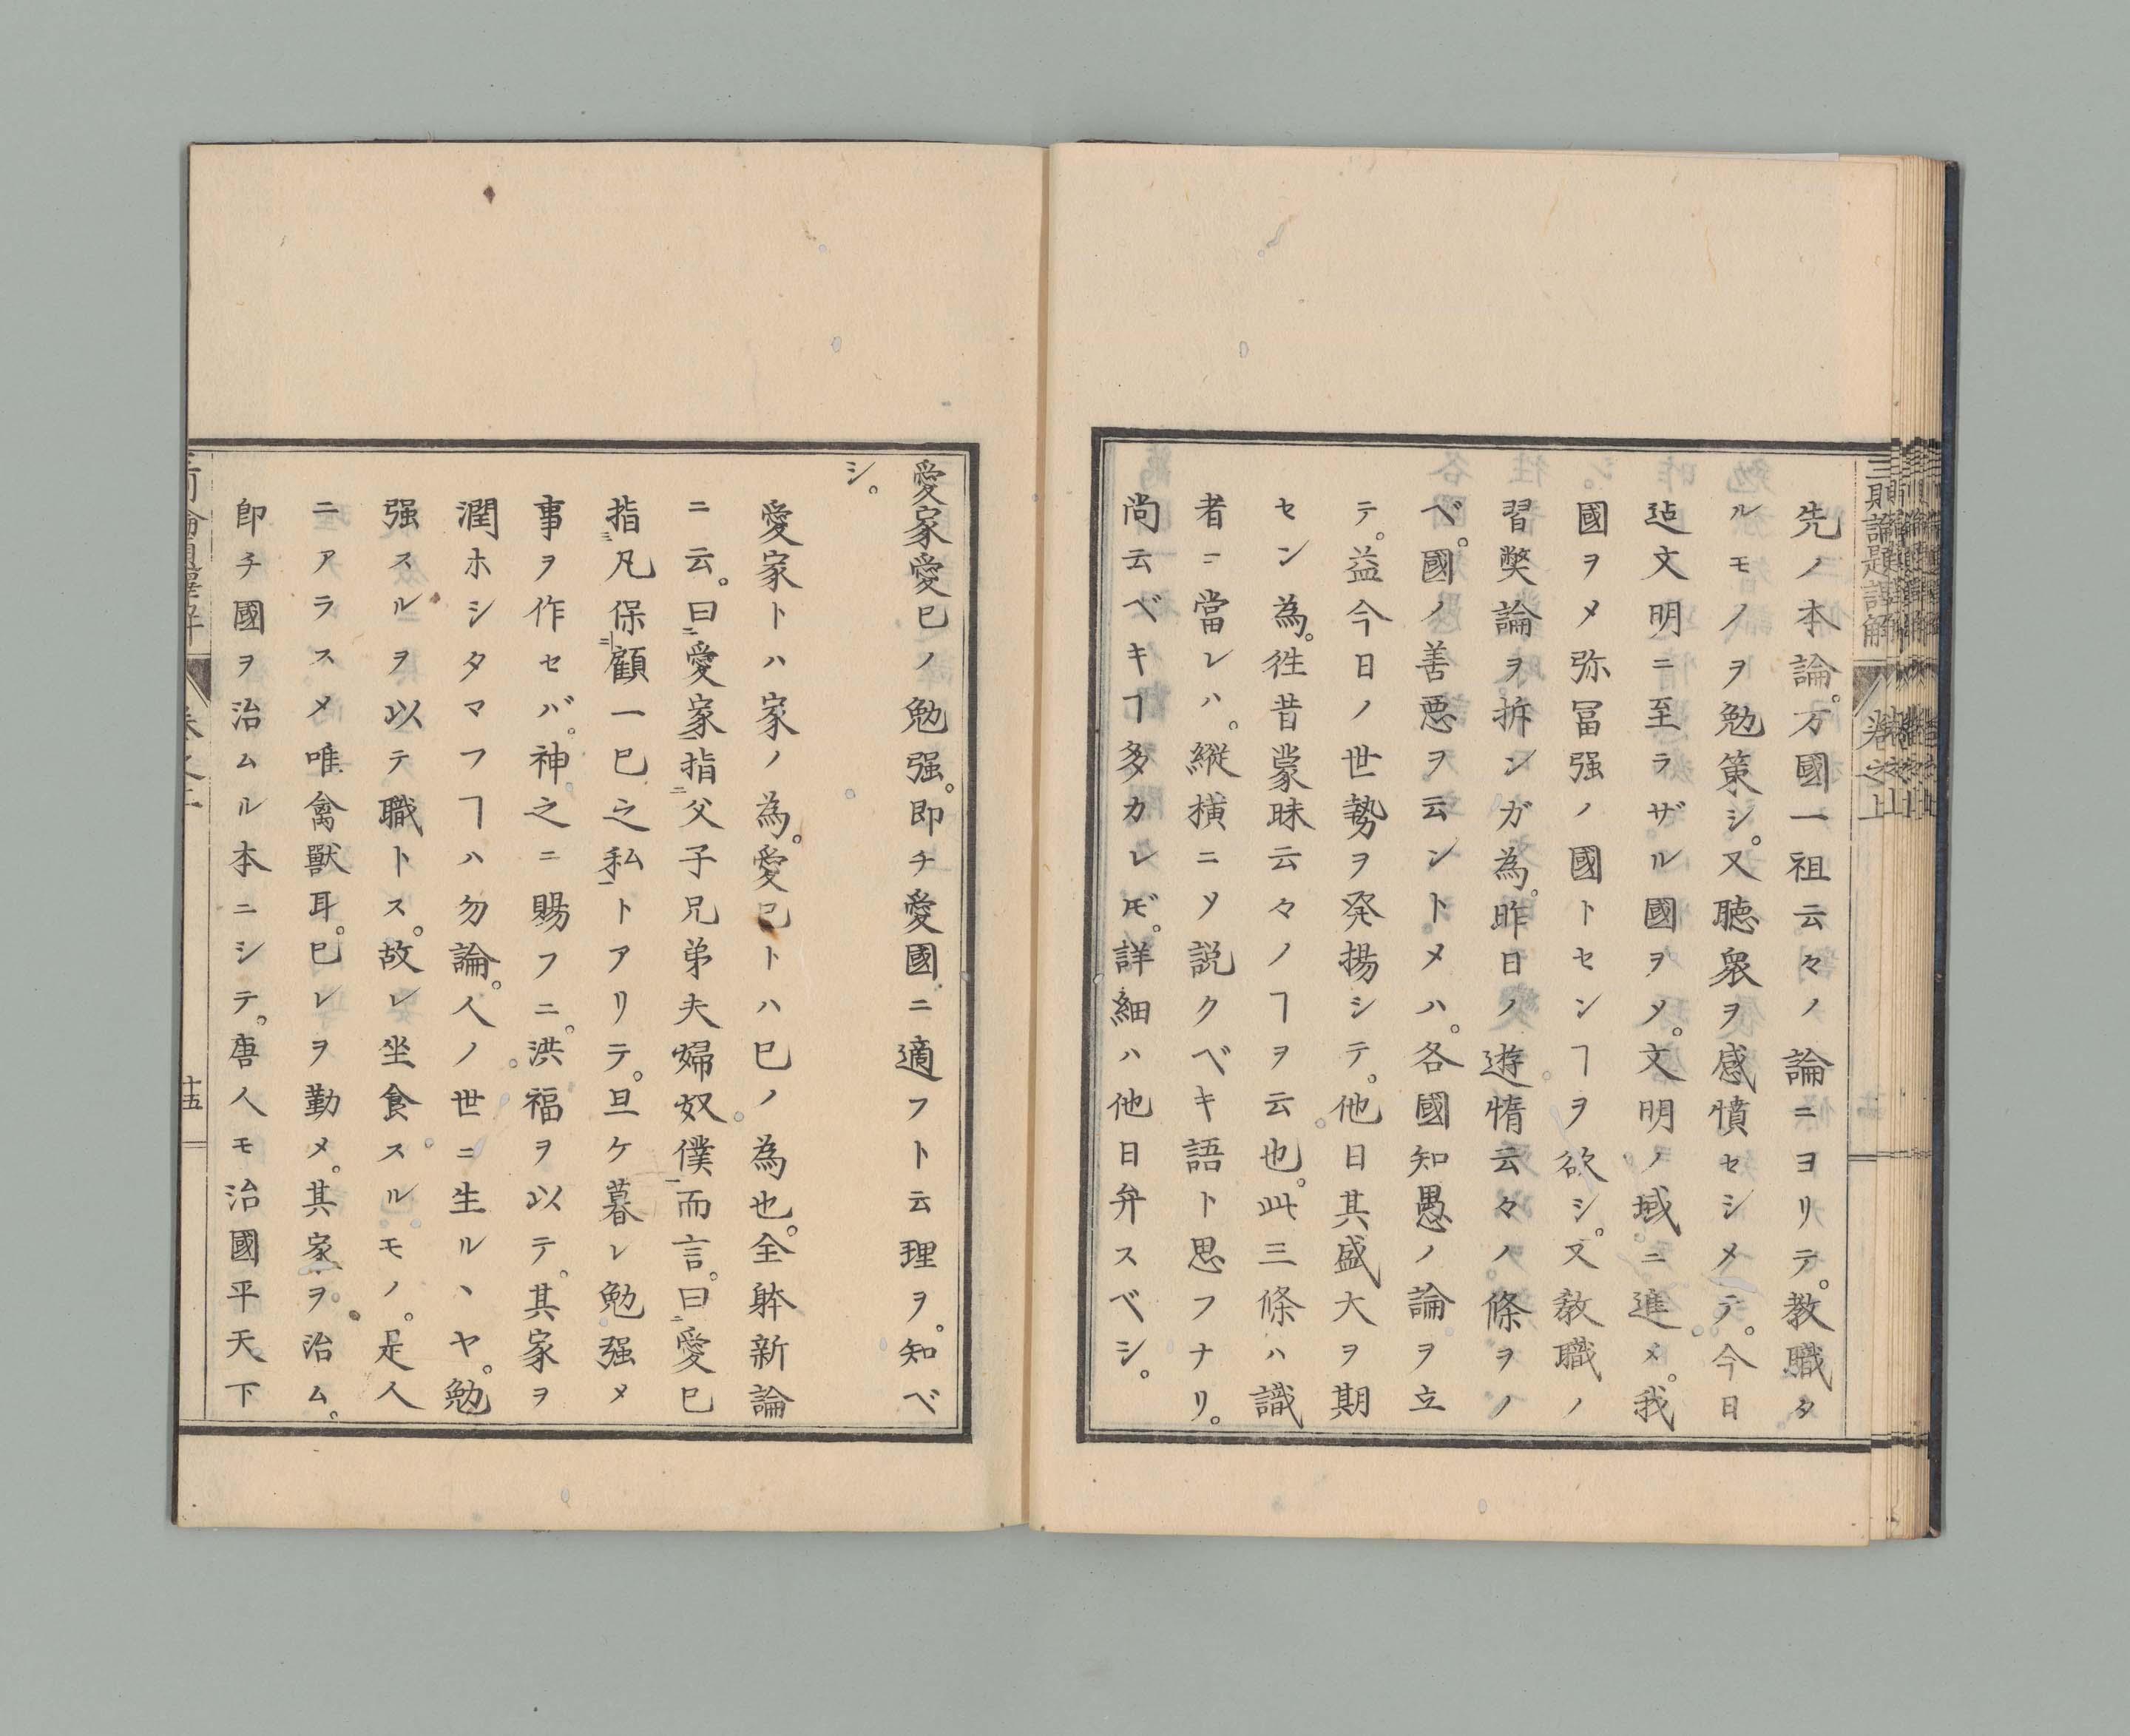 三則論題講解 卷之上
先ノ本論。万國一祖云々ノ論ニヨリテ。教職タ
ルモノヲ勉策シ。又聴衆ヲ感憤セシメテ。今日
迠文明ニ至ラザル國ヲメ。文明ノ域ニ進メ。我
國ヲメ弥冨强ノ國トセンヿヲ欲シ。又教職ノ
習弊論ヲ拆ンガ為。昨日ノ遊惰云々ノ條ヲノ
ベ。國ノ善悪ヲ云ントメハ。各國知愚ノ論ヲ立
テ。益今日ノ世勢ヲ発揚シテ。他日其盛大ヲ期
セン為。徃昔蒙昧云々ノヿヲ云也。此三條ハ識
者ニ當レハ。縦横ニメ説クベキ語ト思フナリ。
尚云ベキヿ多カレ𪜈。詳細ハ他日弁スベシ。
愛家愛己ノ勉强。即チ愛國ニ適フト云理ヲ。知ベ
シ。
愛家トハ家ノ為。愛己トハ己ノ為也。全躰新論
ニ云。曰愛家指父子兄弟夫婦奴僕而言。曰愛己
指凡保顧一己之私トアリテ。旦ケ暮レ勉强メ
事ヲ作セバ。神之ニ賜フニ。洪福ヲ以テ。其家ヲ
潤ホシタマフヿハ勿論。人ノ世ニ生ルヽヤ。勉
强スルヲ以テ職トス。故レ坐食スルモノ。是人
ニアラスメ唯禽獣耳。己レヲ勤メ。其家ヲ治ム。
卽チ國ヲ治ムル本ニシテ。唐人モ治國平天下
十五